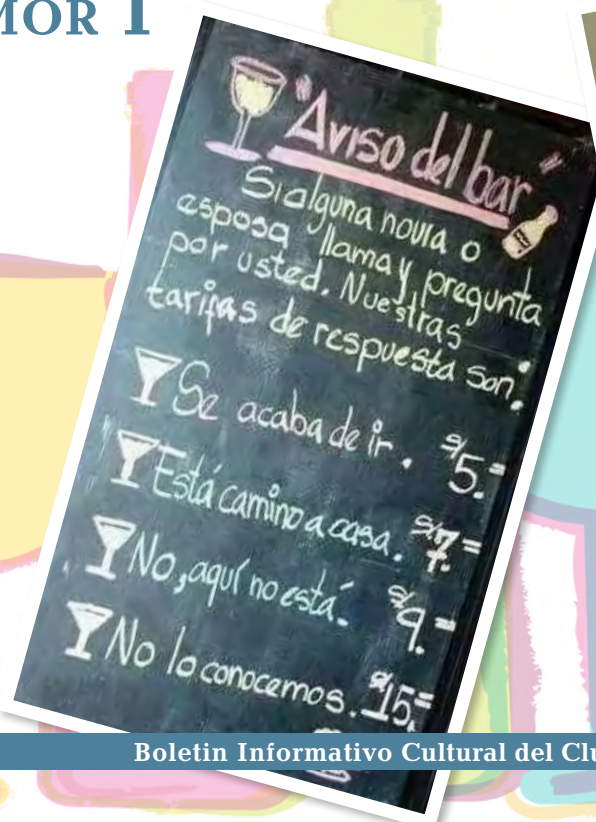 MOR I
"Aviso del bar"
Si alguna novia o
esposa llama y pregunta
por usted. Nuestras
tarifas de respuesta son:
Se acaba de ir. S/5.=
Está camino a casa. S/7.=
No, aquí no está. S/9.=
No lo conocemos. S/15.=
Boletin Informativo Cultural del Clu